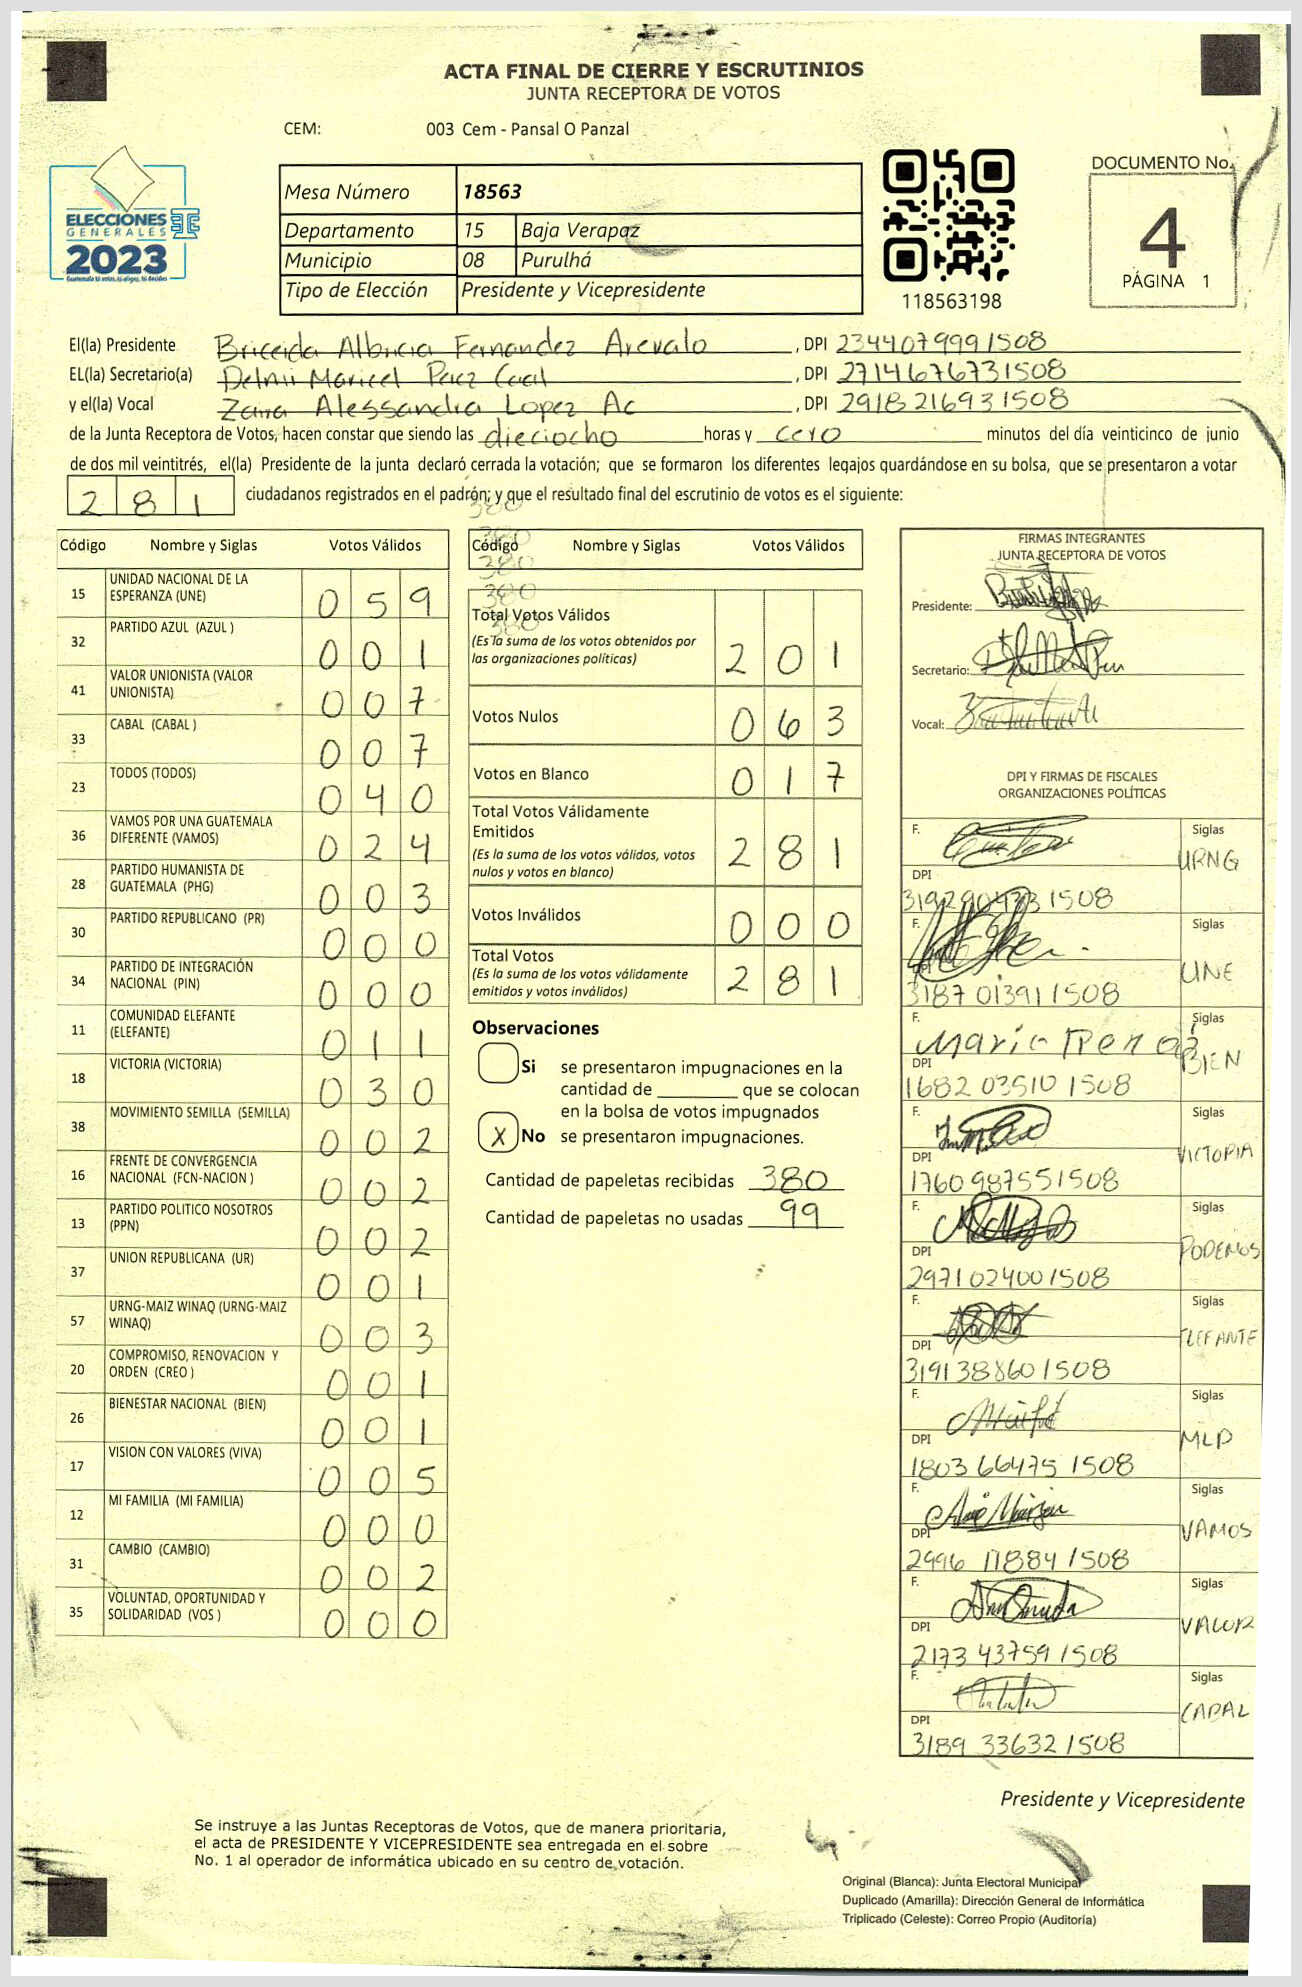 ACTA FINAL DE CIERRE Y ESCRUTINIOS
JUNTA RECEPTORA DE VOTOS
CEM: 003 Cem - Pansal O Panzal
ELECCIONES
GENERALES
2023
Mesa Número 18563
Departamento 15 Baja Verapaz
Municipio 08 Purulhá
Tipo de Elección Presidente y Vicepresidente
118563198
DOCUMENTO No.
4
PÁGINA 1
El(la) Presidente Briceida Albricia Fernandez Arevalo, DPI 2344079991508
EL(la) Secretario(a) Delmi Maricel Paez Caal, DPI 2714676731508
y el(la) Vocal Zaira Alessandra Lopez Ac, DPI 2918216931508
de la Junta Receptora de Votos, hacen constar que siendo las dieciocho horas y cero minutos del día veinticinco de junio
de dos mil veintitrés, el(la) Presidente de la junta declaró cerrada la votación; que se formaron los diferentes legajos guardándose en su bolsa, que se presentaron a votar
281 ciudadanos registrados en el padrón; y que el resultado final del escrutinio de votos es el siguiente:
Código Nombre y Siglas Votos Válidos
15 UNIDAD NACIONAL DE LA ESPERANZA (UNE) 059
32 PARTIDO AZUL (AZUL ) 001
41 VALOR UNIONISTA (VALOR UNIONISTA) 007
33 CABAL (CABAL ) 007
23 TODOS (TODOS) 040
36 VAMOS POR UNA GUATEMALA DIFERENTE (VAMOS) 024
28 PARTIDO HUMANISTA DE GUATEMALA (PHG) 003
30 PARTIDO REPUBLICANO (PR) 000
34 PARTIDO DE INTEGRACIÓN NACIONAL (PIN) 000
11 COMUNIDAD ELEFANTE (ELEFANTE) 011
18 VICTORIA (VICTORIA) 030
38 MOVIMIENTO SEMILLA (SEMILLA) 002
16 FRENTE DE CONVERGENCIA NACIONAL (FCN-NACION ) 002
13 PARTIDO POLITICO NOSOTROS (PPN) 002
37 UNION REPUBLICANA (UR) 001
57 URNG-MAIZ WINAQ (URNG-MAIZ WINAQ) 003
20 COMPROMISO, RENOVACION Y ORDEN (CREO ) 001
26 BIENESTAR NACIONAL (BIEN) 001
17 VISION CON VALORES (VIVA) 005
12 MI FAMILIA (MI FAMILIA) 000
31 CAMBIO (CAMBIO) 002
35 VOLUNTAD, OPORTUNIDAD Y SOLIDARIDAD (VOS ) 000
380
380
380
380
380
Código Nombre y Siglas Votos Válidos
Total Votos Válidos
(Es la suma de los votos obtenidos por
las organizaciones políticas) 201
Votos Nulos 063
Votos en Blanco 017
Total Votos Válidamente
Emitidos
(Es la suma de los votos válidos, votos
nulos y votos en blanco) 281
Votos Inválidos 000
Total Votos
(Es la suma de los votos válidamente
emitidos y votos inválidos) 281
Observaciones
Si se presentaron impugnaciones en la
cantidad de ________ que se colocan
en la bolsa de votos impugnados
X No se presentaron impugnaciones.
Cantidad de papeletas recibidas 380
Cantidad de papeletas no usadas 99
FIRMAS INTEGRANTES
JUNTA RECEPTORA DE VOTOS
Presidente:
Secretario:
Vocal:
DPI Y FIRMAS DE FISCALES
ORGANIZACIONES POLÍTICAS
F. Siglas URNG
DPI
F. Siglas UNE
DPI 3187 01391 1508
F. Siglas BIEN
DPI 1682 03510 1508
F. Siglas VICTORIA
DPI 1760 98755 1508
F. Siglas PODEMOS
DPI 2971 02400 1508
F. Siglas ELEFANTE
DPI 3191 38860 1508
F. Siglas MLP
DPI 1803 66475 1508
F. Siglas VAMOS
DPI 2996 11884 1508
F. Siglas VALOR
DPI 2173 43759 1508
F. Siglas CABAL
DPI 3189 33632 1508
Presidente y Vicepresidente
Se instruye a las Juntas Receptoras de Votos, que de manera prioritaria,
el acta de PRESIDENTE Y VICEPRESIDENTE sea entregada en el sobre
No. 1 al operador de informática ubicado en su centro de votación.
Original (Blanca): Junta Electoral Municipal
Duplicado (Amarilla): Dirección General de Informática
Triplicado (Celeste): Correo Propio (Auditoría)